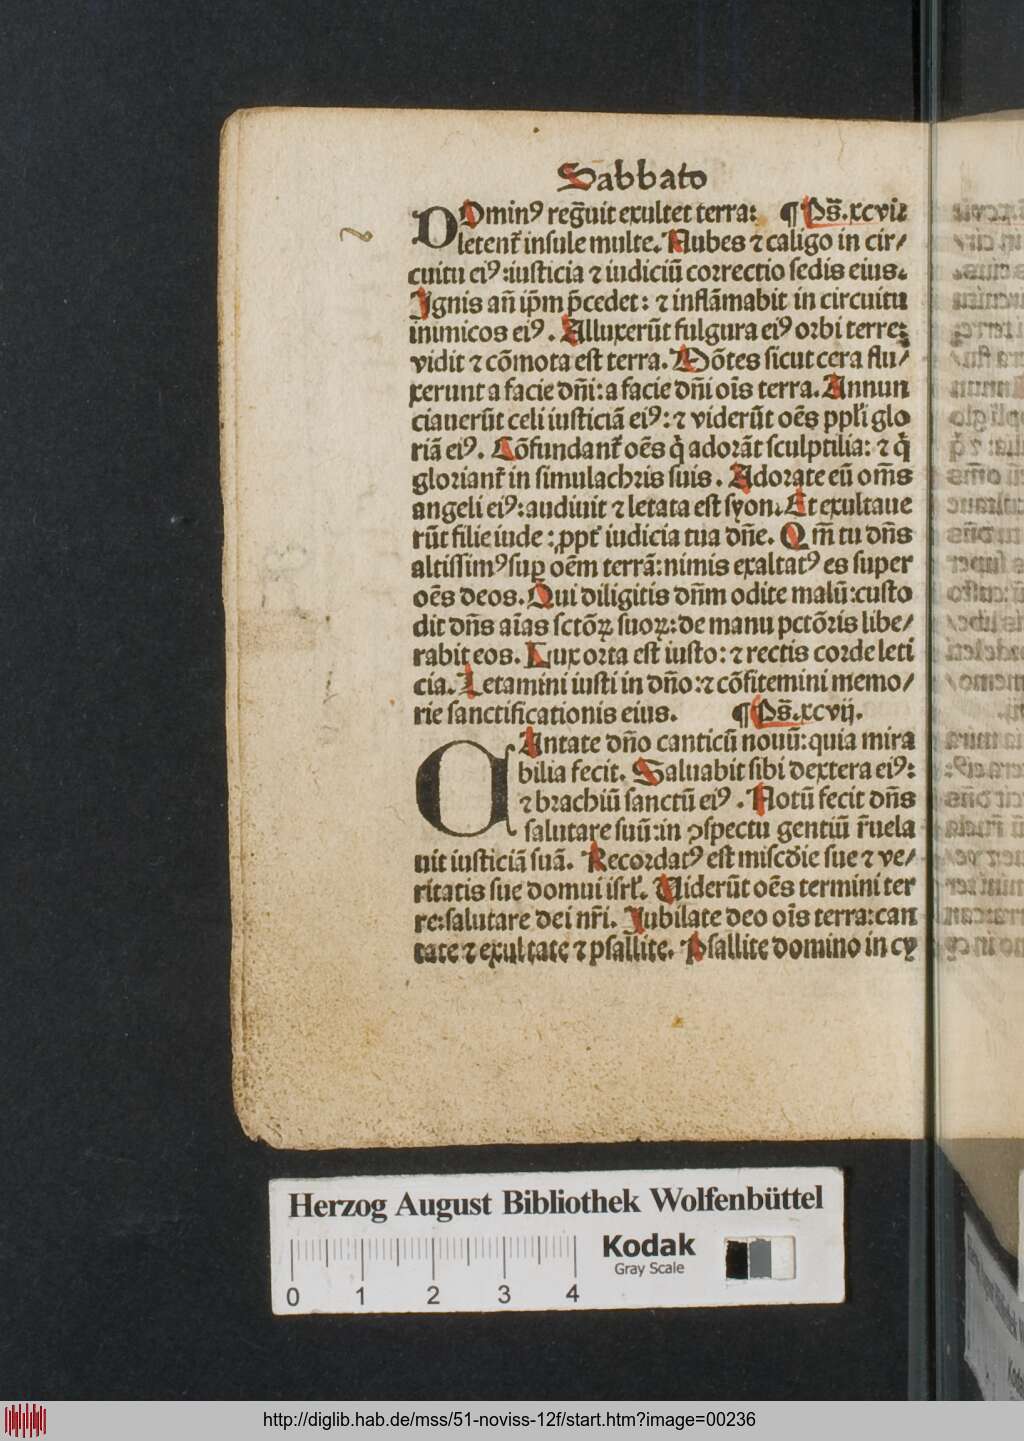 Sabbato
DOminꝰ reg̃uit exultet terra: ¶ Ps̃.xcvii
letent᷑ insule multe. Nubes ⁊ caligo in cir/
cuitu eiꝰ:iusticia ⁊ iudiciũ correctio sedis eius.
Ignis añ ip̃m p̃cedet: ⁊ inflãmabit in circuitu
inimicos eiꝰ. Alluxerũt fulgura eiꝰ orbi terre:
vidit ⁊ cõmota est terra. Mõtes sicut cera flu/
xerunt a facie dñi: a facie dñi oĩs terra. Annun
ciauerũt celi iusticiã eiꝰ: ⁊ viderũt oẽs ppl̃i glo
riã eiꝰ. Cõfundant᷑ oẽs q̇ adorãt sculptilia: ⁊ q̇
gloriant᷑ in simulachris suis. Adorate eũ om̃s
angeli eiꝰ: audiuit ⁊ letata est syon. Et exultaue
rũt filie iude: ꝓpt᷑ iudicia tua dñe. Qm̃ tu dñs
altissimꝰ sup oẽm terrã: nimis exaltatꝰ es super
oẽs deos. Qui diligitis dñm odite malũ: custo
dit dñs aĩas sctõꝝ suoꝝ: de manu pctõris libe/
rabit eos. Lux orta est iusto: ⁊ rectis corde leti
cia. Letamini iusti in dño: ⁊ cõfitemini memo/
rie sanctificationis eius. ¶ Ps̃.xcvij.
CAntate dño canticũ nouũ: quia mira
bilia fecit. Saluabit sibi dextera eiꝰ:
⁊ brachiũ sanctũ eiꝰ. Notũ fecit dñs
salutare suũ: in ↄspectu gentiũ r̃uela
uit iusticiã suã. Recordatꝰ est misc̃die sue ⁊ ve/
ritatis sue domui isrl̃. Viderũt oẽs termini ter
re: salutare dei nr̃i. Jubilate deo oĩs terra: can
tate ⁊ exultate ⁊ psallite. Psallite domino in cy
Herzog August Bibliothek Wolfenbüttel
0 1 2 3 4
Kodak
Gray Scale
http://diglib.hab.de/mss/51-noviss-12f/start.htm?image=00236